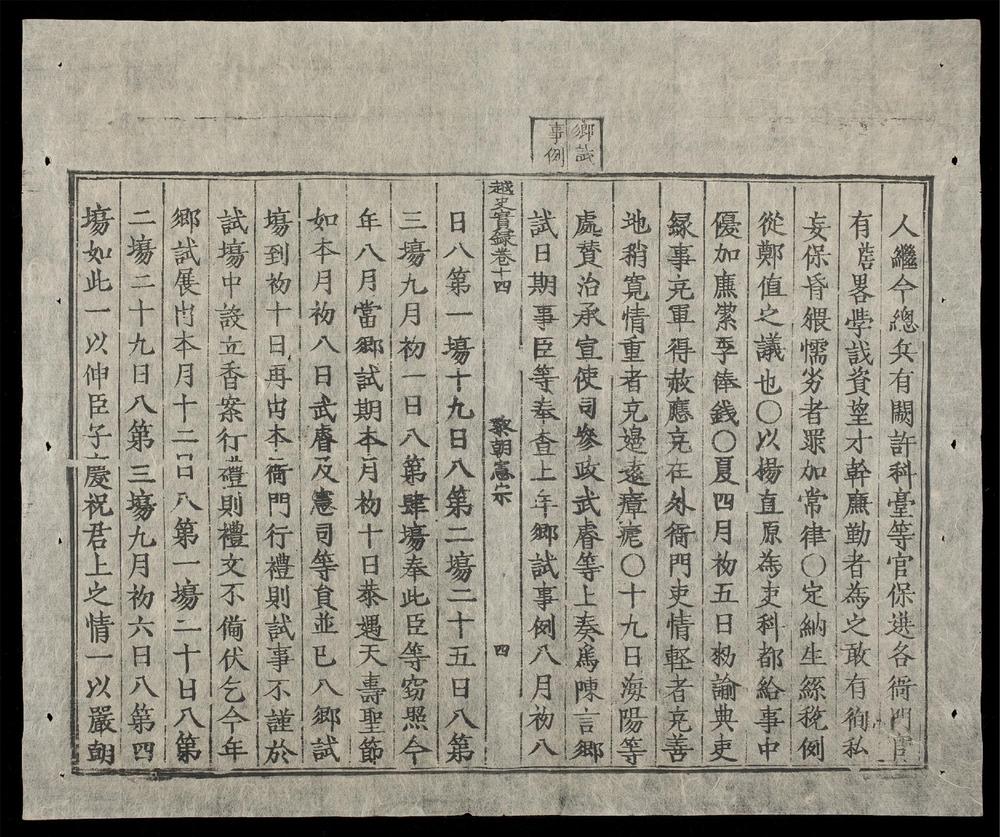 鄉試
事例
人繼今總兵有闕許科臺等官保選各衙門官
有𢈔畧學識資望才幹廉勤者為之敢有徇私
妄保昏猥懦劣者罪加常律○定納生絲稅例
從鄭值之議也○以楊直原為吏科都給事中
優加廉潔季俸錢○夏四月初五日勑諭典吏
録事充軍得赦應充在外衙門吏情輕者充善
地稍寬情重者充邊遠瘴癘○十九日海陽等
處贊治承宣使司參政武睿等上奏爲陳言鄉
試日期事臣等奉查上年鄉試事例八月初八
越史實録卷十四
黎朝憲宗
四
日入第一場十九日入第二場二十五日入第
三場九月初一日入第肆場奉此臣等窃照今
年八月當鄉試期本月初十日恭遇天壽聖節
如本月初八日武睿及憲司等員並已入鄉試
場到初十日再出本衙門行禮則試事不謹於
試場中設立香案行禮則禮文不備伏乞今年
鄉試展出本月十二日入第一場二十日入第
二場二十九日入第三場九月初六日入第四
場如此一以伸臣子慶祝君上之情一以嚴朝